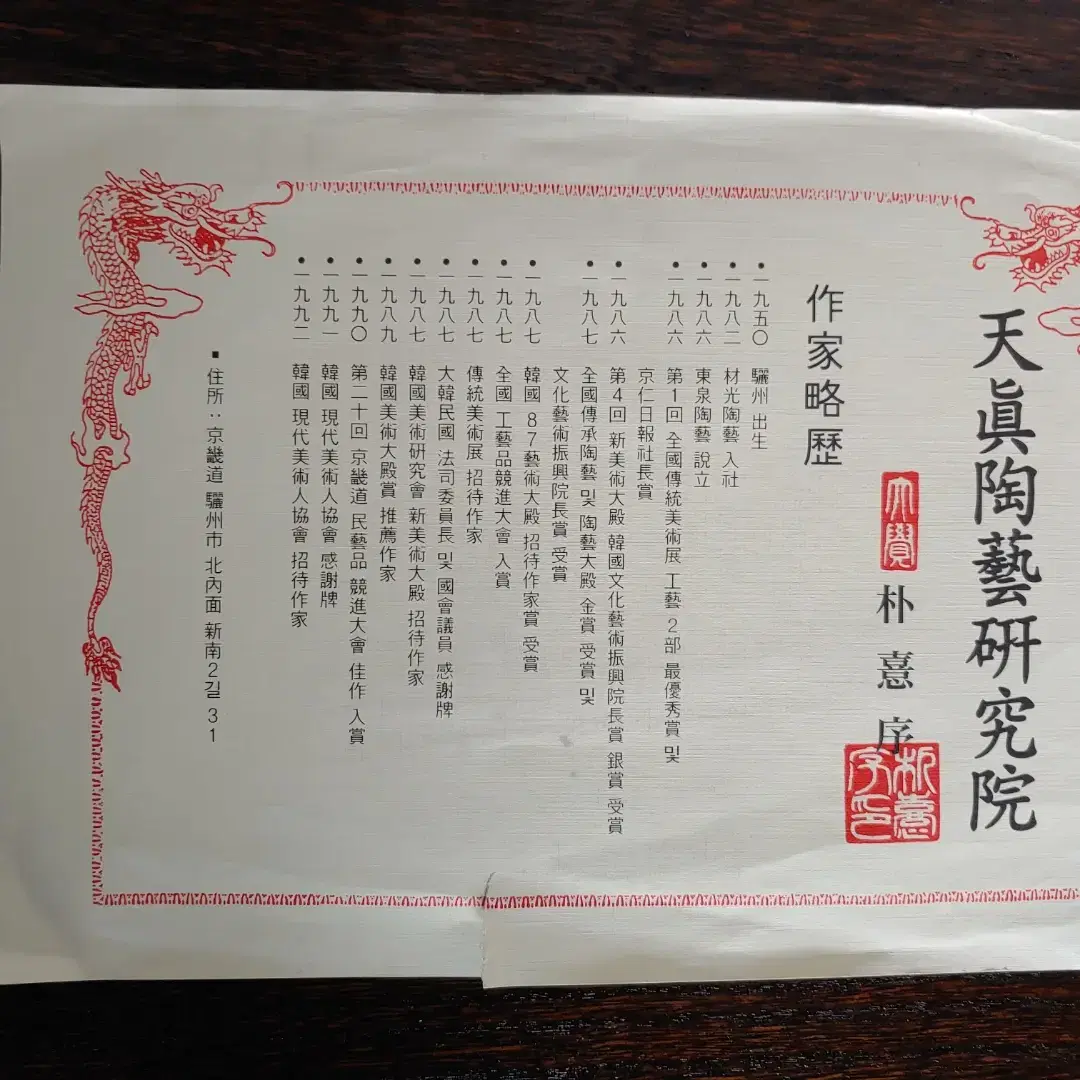 天眞陶藝硏究院
大覺
朴憙序
朴憙序印
作家略歷
• 一九五〇 驪州 出生
• 一九八二 材光陶藝 入社
• 一九八六 東泉陶藝 說立
• 一九八六 第1回 全國傳統美術展 工藝 2部 最優秀賞 및
京仁日報社長賞
• 一九八六 第4回 新美術大殿 韓國文化藝術振興院長賞 銀賞 受賞
• 一九八七 全國傳承陶藝 및 陶藝大殿 金賞 受賞 및
文化藝術振興院長賞 受賞
• 一九八七 韓國 87藝術大殿 招待作家賞 受賞
• 一九八七 全國 工藝品競進大會 入賞
• 一九八七 傳統美術展 招待作家
• 一九八七 大韓民國 法司委員長 및 國會議員 感謝牌
• 一九八七 韓國美術硏究會 新美術大殿 招待作家
• 一九八九 韓國美術大殿賞 推薦作家
• 一九九〇 第二十回 京畿道 民藝品 競進大會 佳作 入賞
• 一九九一 韓國 現代美術人協會 感謝牌
• 一九九二 韓國 現代美術人協會 招待作家
▪ 住所 : 京畿道 驪州市 北內面 新南2길 31